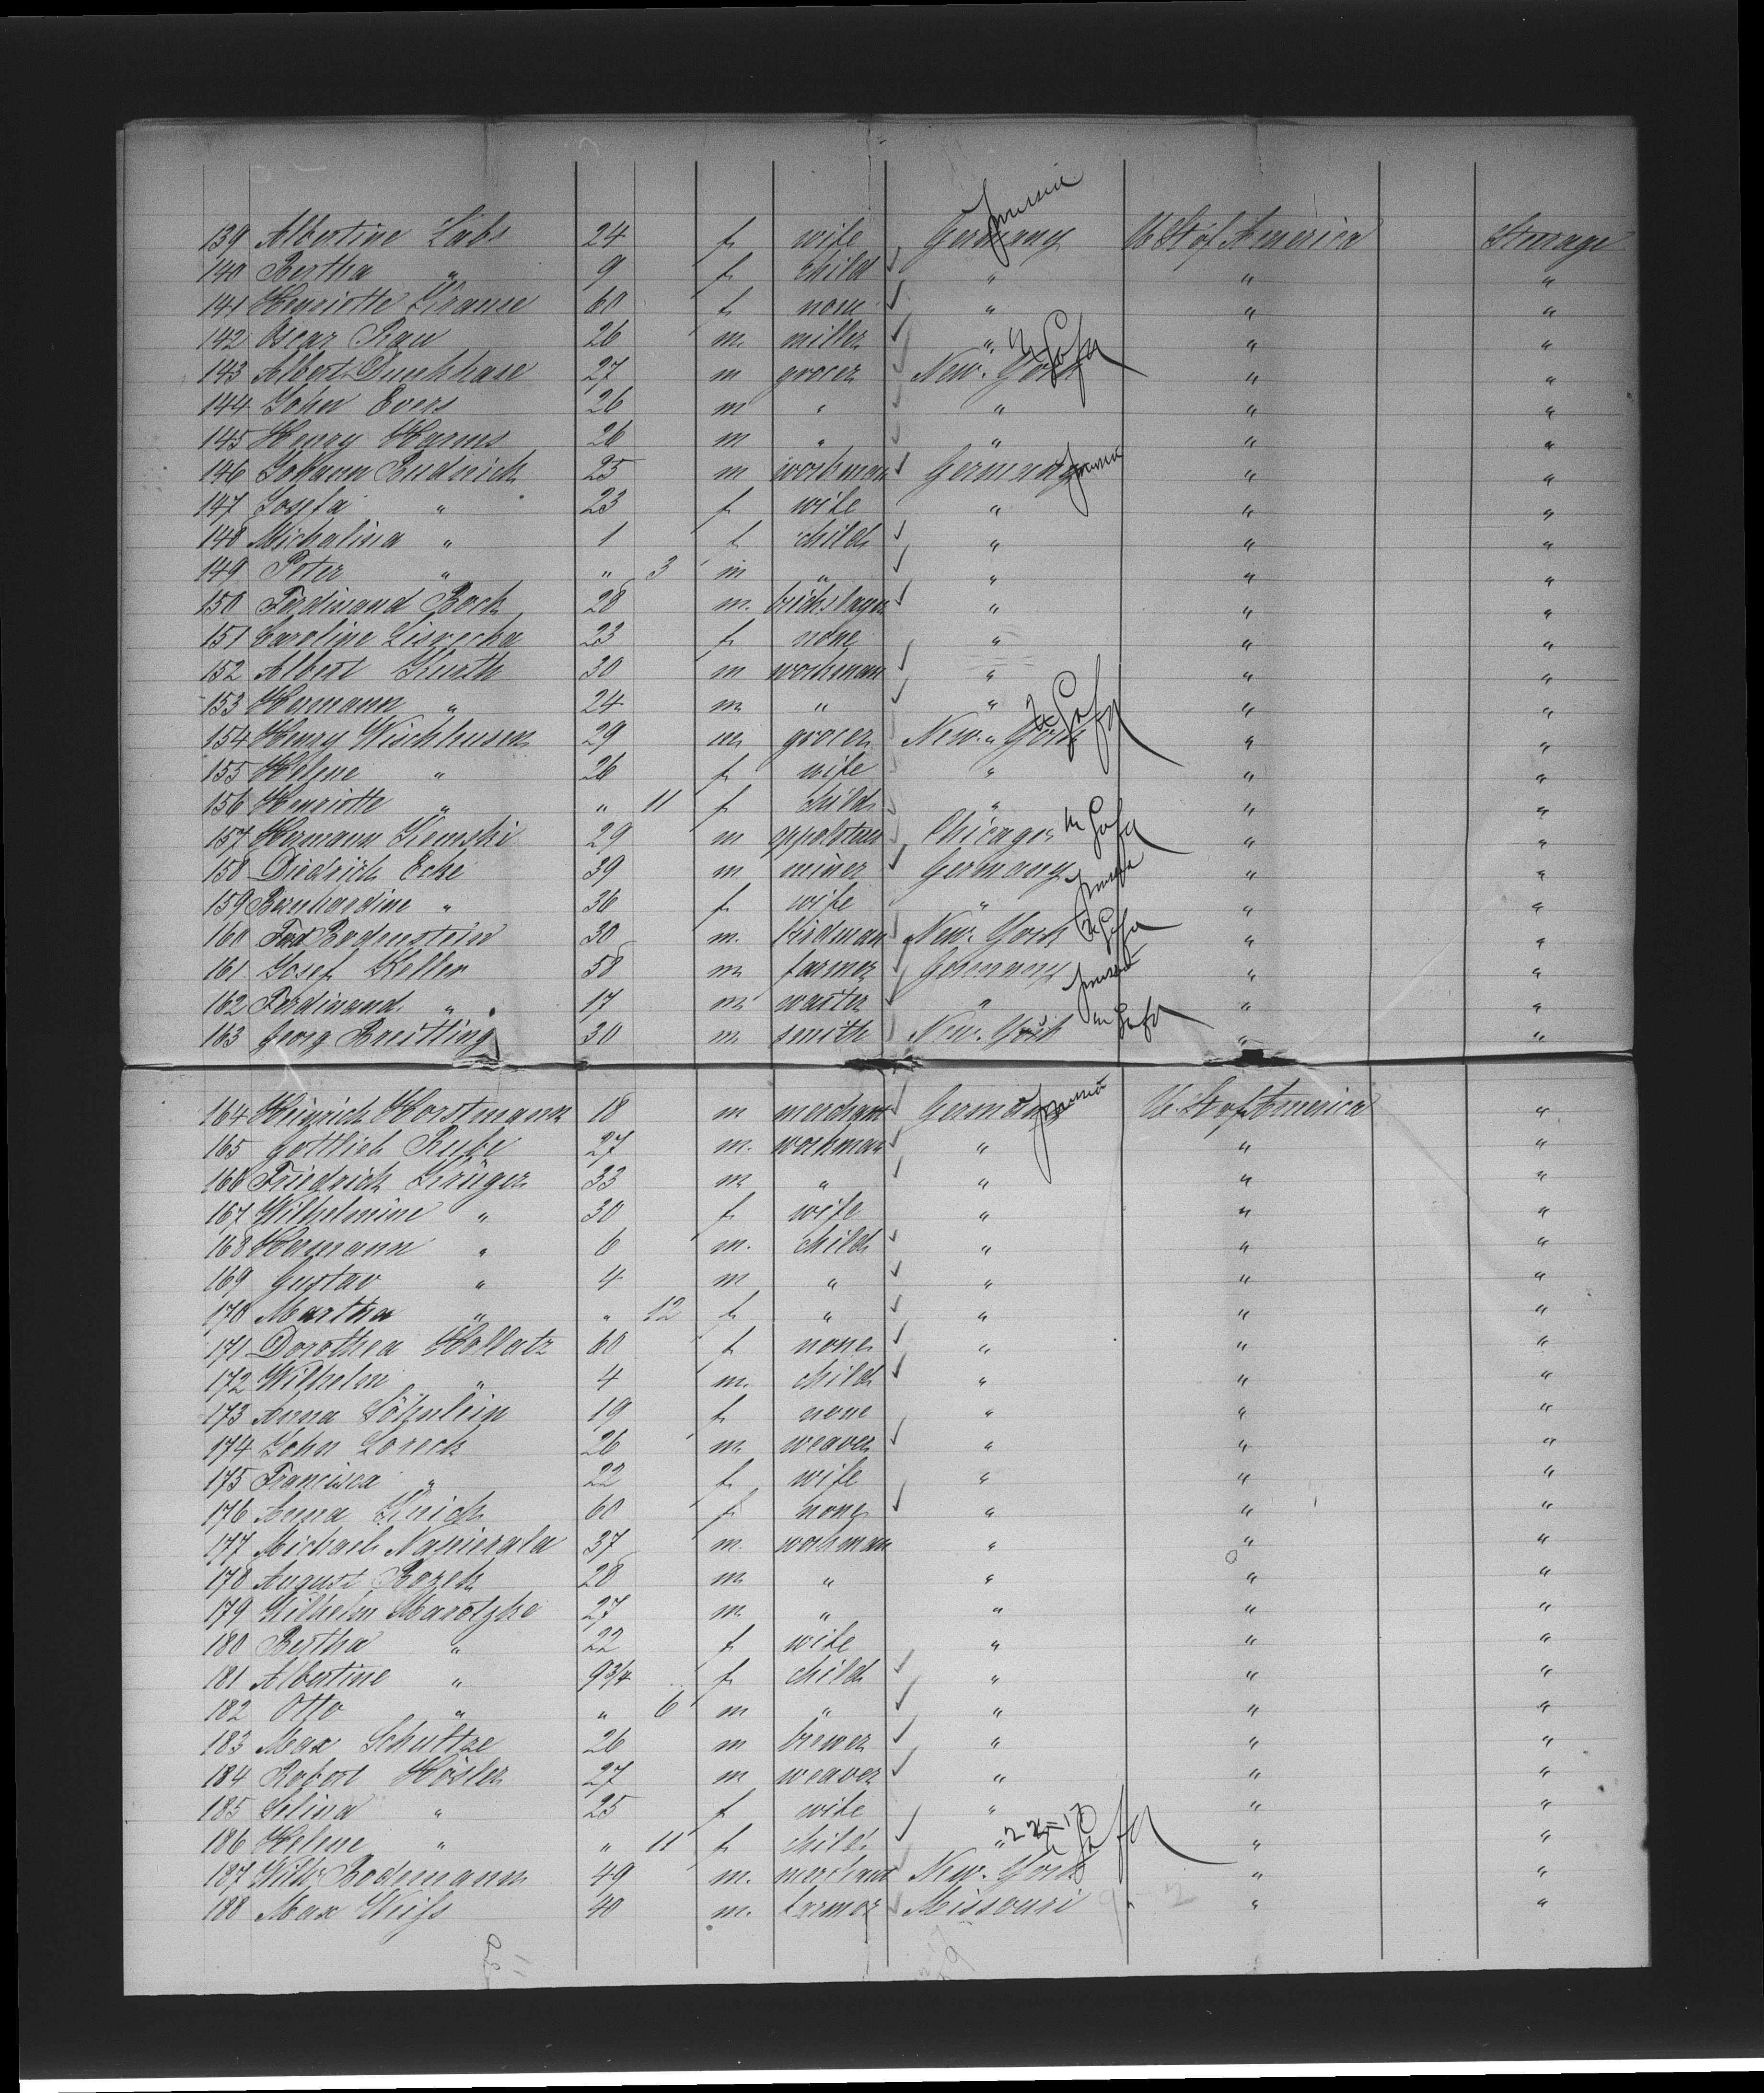 Prussia
139 Albertine Labs 24 f wife Germany U. St. of America Steerage
140 Bertha " 9 f child " " "
141 Henriette Krause 60 f none " " "
142 Oscar Rau 26 m. miller " " "
U S of A
143 Albert Dunkhase 27 m grocer New-York " "
144 John Evers 26 m " " " "
145 Henry Harms 26 m " " " "
146 Johann Budnick 25 m workman Germany Prussia " "
147 Josefa " 23 f wife " " "
148 Michalina " 1 f child " " "
149 Peter " " 3 m " " " "
150 Ferdinand Bock 28 m. brickslayer " " "
151 Caroline 23 f none " " "
152 Albert Kurth 30 m workman " " "
153 Hermann " 24 m " " " "
U S of A
154 Henry Wischhusen 29 m grocer New-York " "
155 Helene " 26 f wife " " "
156 Henriette " " 11 f child " " "
157 Hermann Kemski 29 m Chicago U S of A " "
158 Diedrich Ecke 39 m miner Germany Prussia " "
159 Bernhardine " 36 f wife " " "
160 Ferd Bodenstein 30 m. New-York U S of A " "
161 Josef Keller 58 m farmer Germany Prussia " "
162 Ferdinand " 17 m waiter " " "
163 Georg Breitling 30 m smith New-York U S of A " "
164 Heinrich Horstmann 18 m merchant Germany Prussia U. St. of America "
165 Gottlieb Rube 27 m. workman " " "
166 Friedrich Krüger 33 m " " " "
167 Wilhelmine " 30 f wife " " "
168 Hermann " 6 m. child " " "
169 Gustav " 4 m " " " "
170 Martha " " 12 f " " " "
171 Dorothea Kollatz 60 f none " " "
172 Wilhelm " 4 m. child " " "
173 Anna 19 f none " " "
174 John Loreck 26 m. weaver " " "
175 Francisca " 22 f wife " " "
176 Anna 60 f none " " "
177 Michael Napierala 37 m. workman " " "
178 August 28 m. " " " "
179 Wilhelm Marotzke 27 m. " " " "
180 Bertha " 22 f wife " " "
181 Albertine " 9 3/4 f child " " "
182 Otto " " 6 m " " " "
183 Max Schultze 26 m brewer " " "
184 Robert Hösler 27 m weaver " " "
185 Selina " 25 f wife " " "
186 Helene " " 11 f child " " "
U S of A
187 Wilh. Bodemann 49 m. merchant New-York " "
188 Max Weifs 40 m. farmer Missouri " "